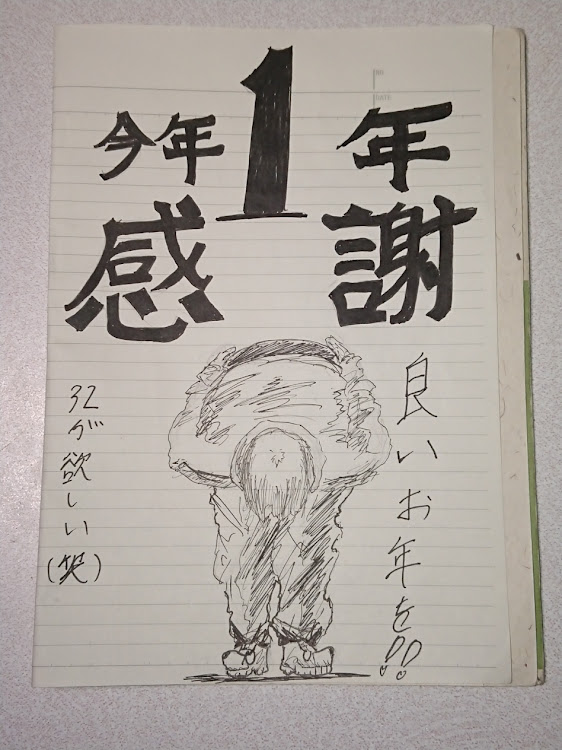 今年1年
感謝
良いお年を!!
32が欲しい
(笑)
NO.
DATE